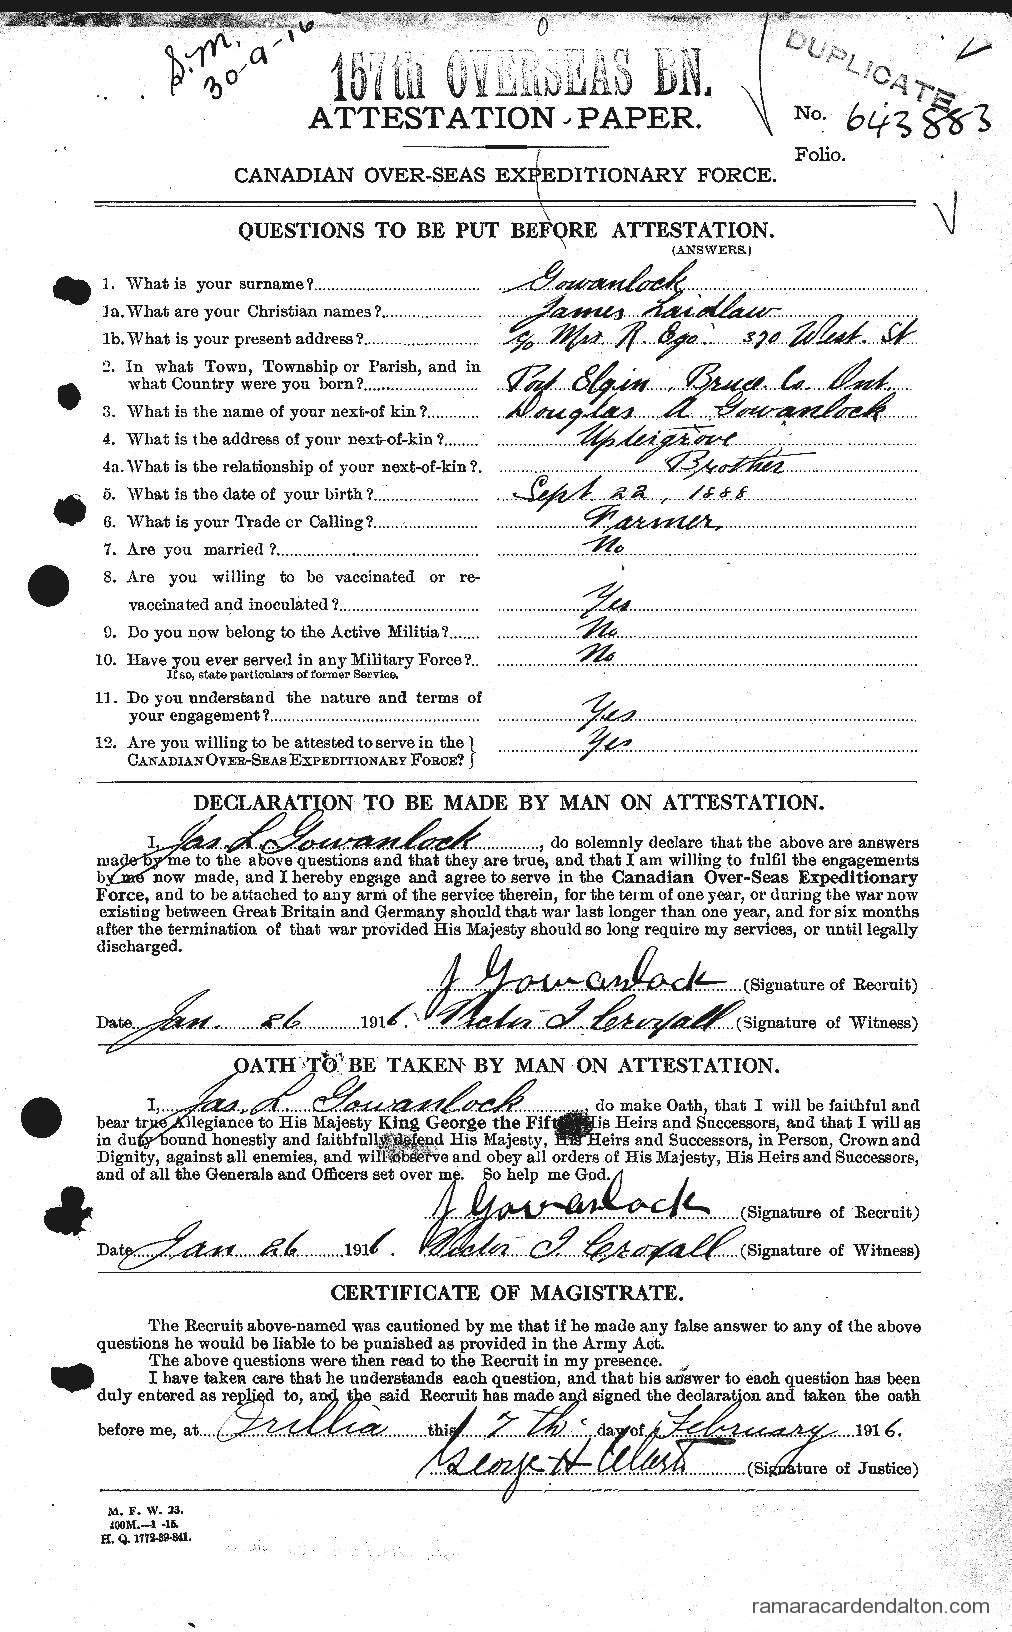 S.M.
30-9-16
157th OVERSEAS BN.
DUPLICATE
ATTESTATION PAPER.
No. 643883
Folio.
CANADIAN OVER-SEAS EXPEDITIONARY FORCE.
QUESTIONS TO BE PUT BEFORE ATTESTATION.
(ANSWERS)
1. What is your surname? Gowanlock
1a. What are your Christian names? James Laidlaw
1b. What is your present address? c/o Mrs R. Ego. 370 West. St
2. In what Town, Township or Parish, and in
what Country were you born? Port Elgin, Bruce Co. Ont.
3. What is the name of your next-of kin? Douglas A Gowanlock
4. What is the address of your next-of-kin? Uptergrove
4a. What is the relationship of your next-of-kin? Brother
5. What is the date of your birth? Sept 22, 1888
6. What is your Trade or Calling? Farmer
7. Are you married? No
8. Are you willing to be vaccinated or re-
vaccinated and inoculated? Yes
9. Do you now belong to the Active Militia? No
10. Have you ever served in any Military Force? No
If so, state particulars of former Service.
11. Do you understand the nature and terms of
your engagement? Yes
12. Are you willing to be attested to serve in the
CANADIAN OVER-SEAS EXPEDITIONARY FORCE? Yes
DECLARATION TO BE MADE BY MAN ON ATTESTATION.
I, Jas. L. Gowanlock, do solemnly declare that the above are answers
made by me to the above questions and that they are true, and that I am willing to fulfil the engagements
by me now made, and I hereby engage and agree to serve in the Canadian Over-Seas Expeditionary
Force, and to be attached to any arm of the service therein, for the term of one year, or during the war now
existing between Great Britain and Germany should that war last longer than one year, and for six months
after the termination of that war provided His Majesty should so long require my services, or until legally
discharged.
J Gowanlock (Signature of Recruit)
Date Jan. 26 1916. Victor J. Croxall (Signature of Witness)
OATH TO BE TAKEN BY MAN ON ATTESTATION.
I, Jas. L. Gowanlock, do make Oath, that I will be faithful and
bear true Allegiance to His Majesty King George the Fifth, His Heirs and Successors, and that I will as
in duty bound honestly and faithfully defend His Majesty, His Heirs and Successors, in Person, Crown and
Dignity, against all enemies, and will observe and obey all orders of His Majesty, His Heirs and Successors,
and of all the Generals and Officers set over me. So help me God.
J Gowanlock (Signature of Recruit)
Date Jan 26 1916. Victor J. Croxall (Signature of Witness)
CERTIFICATE OF MAGISTRATE.
The Recruit above-named was cautioned by me that if he made any false answer to any of the above
questions he would be liable to be punished as provided in the Army Act.
The above questions were then read to the Recruit in my presence.
I have taken care that he understands each question, and that his answer to each question has been
duly entered as replied to, and the said Recruit has made and signed the declaration and taken the oath
before me, at Orillia this 7th day of February 1916.
George H (Signature of Justice)
M. F. W. 23.
400M.—1 -15.
H. Q. 1772-39-841.
ramaracardendalton.com